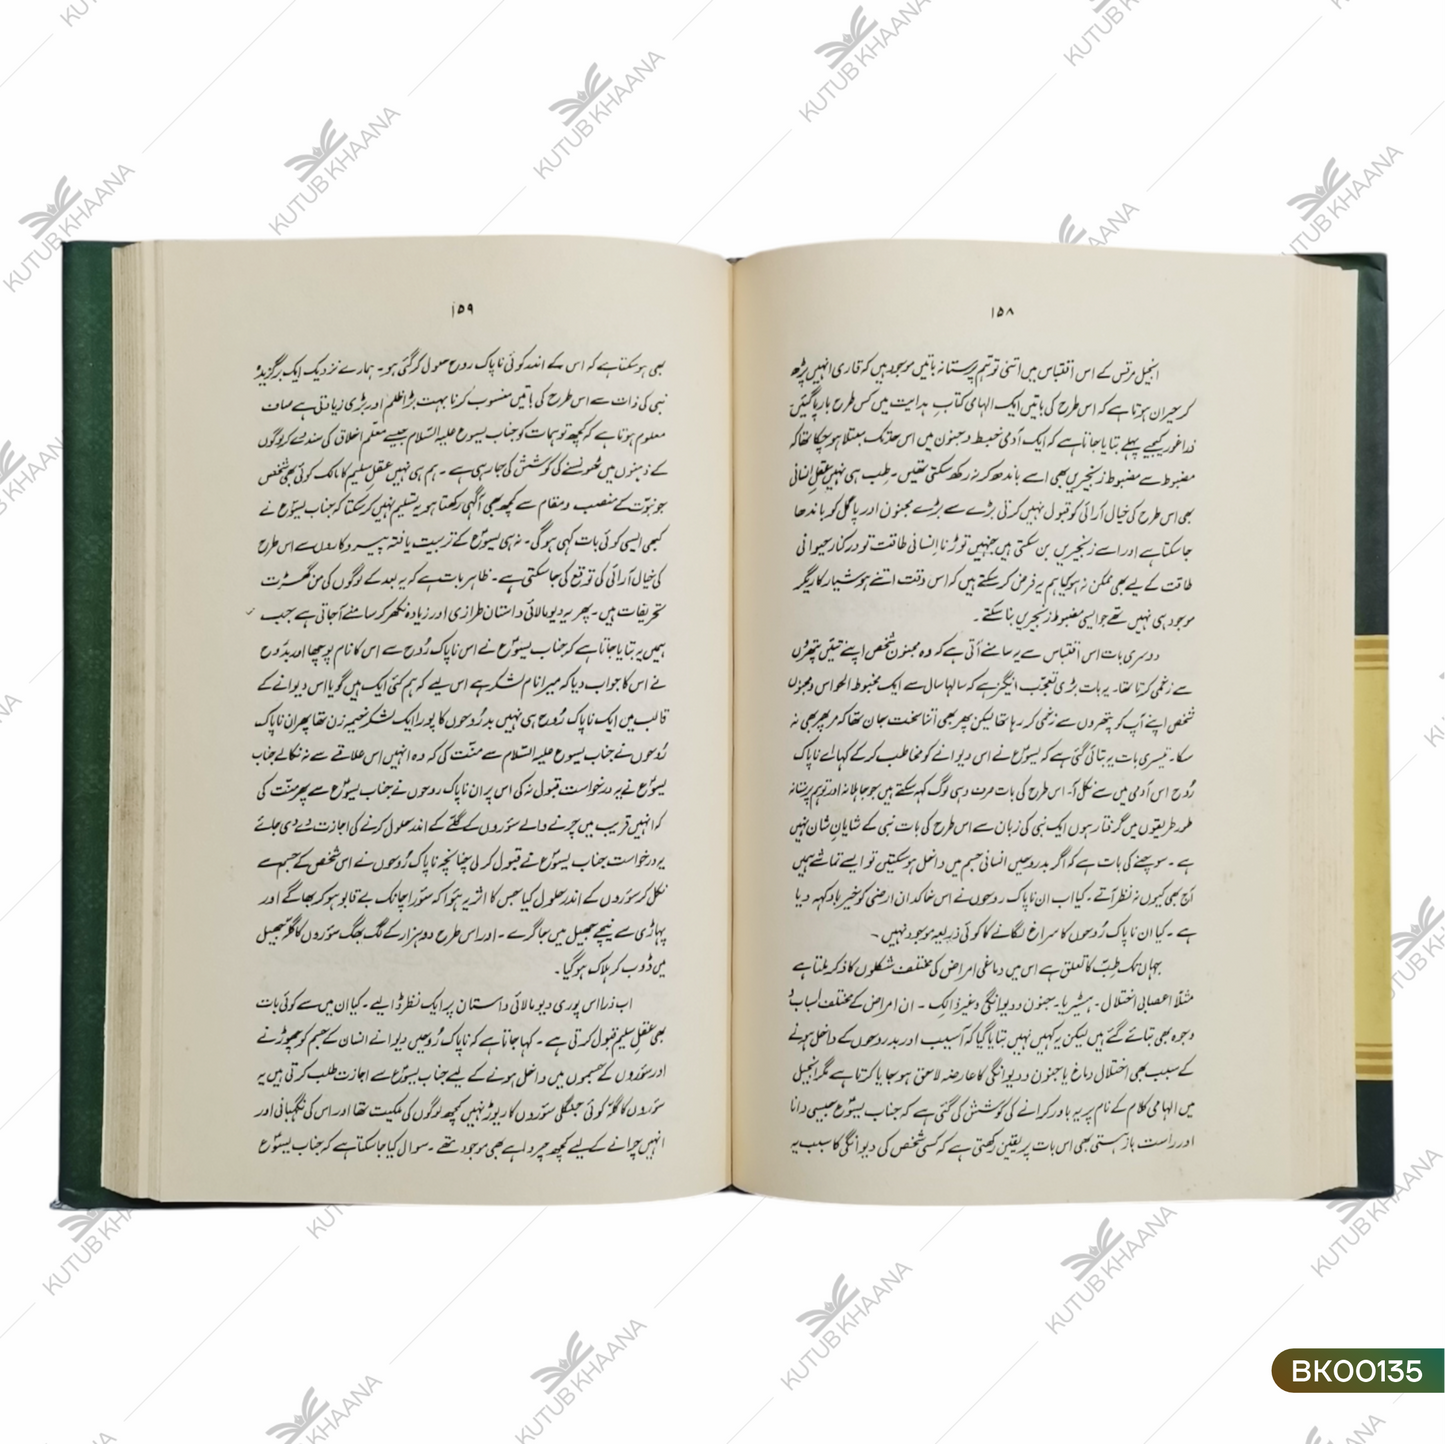 ۱۵۸
انجیل مرقس کے اس اقتباس میں اتنی توہم پرستانہ باتیں موجود ہیں کہ قاری انہیں پڑھ
کر حیران ہوتا ہے کہ اس طرح کی باتیں ایک الہامی کتابِ ہدایت میں کس طرح بار پا گئیں۔
ذرا غور کیجیے پہلے بتایا جاتا ہے کہ ایک آدمی خبط و جنون میں اس حد تک مبتلا ہو چکا تھا کہ
مضبوط سے مضبوط زنجیریں بھی اسے باندھ کر نہ رکھ سکتی تھیں۔ طب ہی نہیں عقلِ انسانی
بھی اس طرح کی خیال آرائی کو قبول نہیں کرتی بڑے سے بڑے مجنون اور پاگل کو باندھا
جا سکتا ہے اور اسے زنجیریں بن سکتی ہیں جنہیں توڑنا انسانی طاقت تو درکنار حیوانی
طاقت کے لیے بھی ممکن نہ ہو کیا ہم یہ فرض کر سکتے ہیں کہ اس وقت اتنے ہوشیار کاریگر
موجود ہی نہیں تھے جو ایسی مضبوط زنجیریں بنا سکتے۔
دوسری بات اس اقتباس سے یہ سامنے آتی ہے کہ وہ مجنون شخص اپنے تئیں پتھروں
سے زخمی کرتا تھا۔ یہ بات بڑی تعجب انگیز ہے کہ سالہا سال سے ایک مخبوط الحواس و مجنوں
شخص اپنے آپ کو پتھروں سے زخمی کر رہا تھا لیکن پھر بھی اتنا سخت جان تھا کہ مر پھر بھی نہ
سکا۔ تیسری بات یہ بتائی گئی ہے کہ یسوعؑ نے اس دیوانے کو مخاطب کر کے کہا اے ناپاک
رُوح اس آدمی میں سے نکل آ۔ اس طرح کی بات صرف وہی لوگ کہہ سکتے ہیں جو جاہلانہ اور توہم پرستانہ
طور طریقوں میں گرفتار ہوں ایک نبی کی زبان سے اس طرح کی بات نبی کے شایانِ شان نہیں
ہے۔ سوچنے کی بات ہے کہ اگر بدروحیں انسانی جسم میں داخل ہو سکتیں تو ایسے تماشے ہمیں
آج بھی کیوں نہ نظر آتے۔ کیا اب ان ناپاک روحوں نے اس خاکدانِ ارضی کو خیرباد کہہ دیا
ہے۔ کیا ان ناپاک رُوحوں کا سراغ لگانے کا کوئی ذریعہ موجود نہیں۔
جہاں تک طب کا تعلق ہے اس میں دماغی امراض کی مختلف شکلوں کا ذکر ملتا ہے
مثلاً اعصابی اختلال۔ ہسٹیریا۔ جنون و دیوانگی وغیرہ ذالک۔ ان امراض کے مختلف اسباب و
وجوہ بھی بتائے گئے ہیں لیکن یہ کہیں نہیں بتایا گیا کہ آسیب اور بدروحوں کے داخل ہونے
کے سبب بھی اختلالِ دماغ یا جنون و دیوانگی کا عارضہ لاحق ہو جایا کرتا ہے مگر انجیل
میں الہامی کلام کے نام پر یہ باور کرانے کی کوشش کی گئی ہے کہ جناب یسوعؑ جیسی دانا
اور راست باز ہستی بھی اس بات پر یقین رکھتی ہے کہ کسی شخص کی دیوانگی کا سبب یہ
۱۵۹
بھی ہو سکتا ہے کہ اس کے اندر کوئی ناپاک روح حلول کر گئی ہو۔ ہمارے نزدیک ایک برگزیدہ
نبی کی ذات سے اس طرح کی باتیں منسوب کرنا بہت بڑا ظلم اور بڑی زیادتی ہے صاف
معلوم ہوتا ہے کہ کچھ توہمات کو جناب یسوع علیہ السّلام جیسے معلّم اخلاق کی سند دے کر لوگوں
کے ذہنوں میں ٹھونسنے کی کوشش کی جا رہی ہے۔ ہم ہی نہیں عقلِ سلیم کا مالک کوئی بھی شخص
جو نبوّت کے منصب و مقام سے کچھ بھی آگہی رکھتا ہو یہ تسلیم نہیں کر سکتا کہ جناب یسوعؑ نے
کبھی ایسی کوئی بات کہی ہو گی۔ نہ ہی یسوعؑ کے تربیت یافتہ پیروکاروں سے اس طرح
کی خیال آرائی کی توقع کی جا سکتی ہے۔ ظاہر بات ہے کہ یہ بعد کے لوگوں کی من گھڑت
تحریفات ہیں۔ پھر یہ دیو مالائی داستان طرازی اور زیادہ نکھر کر سامنے آجاتی ہے جب
ہمیں یہ بتایا جاتا ہے کہ جناب یسوعؑ نے اس ناپاک رُوح سے اس کا نام پوچھا اور بدروح
نے اس کا جواب دیا کہ میرا نام لشکر ہے اس لیے کہ ہم کئی ایک ہیں گویا اس دیوانے کے
قالب میں ایک ناپاک رُوح ہی نہیں بدرُوحوں کا پورا ایک لشکر خیمہ زن تھا پھر ان ناپاک
رُوحوں نے جناب یسوع علیہ السّلام سے منّت کی کہ وہ انہیں اس علاقے سے نہ نکالے جناب
یسوعؑ نے یہ درخواست قبول نہ کی اس پر ان ناپاک روحوں نے جناب یسوعؑ سے پھر منّت کی
کہ انہیں قریب میں چرنے والے سؤروں کے گلّے کے اندر حلول کرنے کی اجازت دے دی جائے
یہ درخواست جناب یسوعؑ نے قبول کر لی چنانچہ ناپاک رُوحوں نے اس شخص کے جسم سے
نکل کر سؤروں کے اندر حلول کیا جس کا اثر یہ ہُوا کہ سؤر اچانک بے قابو ہو کر بھاگے اور
پہاڑی سے نیچے جھیل میں جا گرے۔ اور اس طرح دو ہزار کے لگ بھگ سؤروں کا گلّہ جھیل
میں ڈوب کر ہلاک ہو گیا۔
اب ذرا اس پوری دیو مالائی داستان پر ایک نظر ڈالیے۔ کیا ان میں سے کوئی بات
بھی عقلِ سلیم قبول کرتی ہے۔ کہا جاتا ہے کہ ناپاک رُوحیں دیوانے انسان کے جسم کو چھوڑنے
اور سؤروں کے جسموں میں داخل ہونے کے لیے جناب یسوعؑ سے اجازت طلب کرتی ہیں یہ
سؤروں کا گلّہ کوئی جنگلی سؤروں کا ریوڑ نہیں کچھ لوگوں کی ملکیت تھا اور اس کی نگہبانی اور
انہیں چرانے کے لیے کچھ چرواہے بھی موجود تھے۔ سوال کیا جا سکتا ہے کہ جناب یسوعؑ
KUTUB KHAANA
BK00135